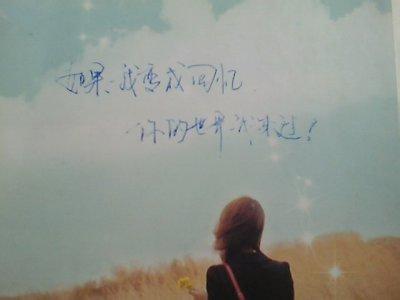 如果我变成回忆
你的世界我来过!